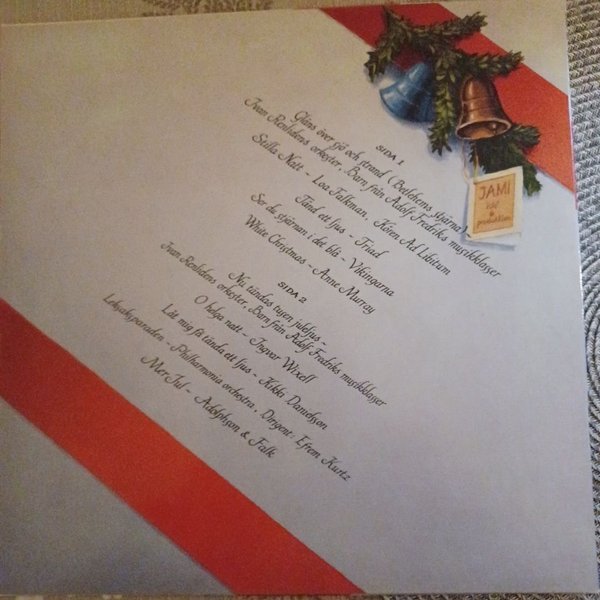 SIDA 1
Gläns över sjö och strand (Betlehems stjärna)
Ivan Renlidens orkester, Barn från Adolf Fredriks musikklasser
Stilla Natt - Loa Falkman, Kören Ad Libitum
Tänd ett ljus - Triad
Ser du stjärnan i det blå - Vikingarna
White Christmas - Anne Murray
SIDA 2
Nu tändas tusen juleljus -
Ivan Renlidens orkester, Barn från Adolf Fredriks musikklasser
O helga natt - Ingvar Wixell
Låt mig få tända ett ljus - Kikki Danielsson
Leksaksparaden - Philharmonia orchestra, Dirigent: Efrem Kurtz
Mer Jul - Adolphson & Falk
JAMI
produktion